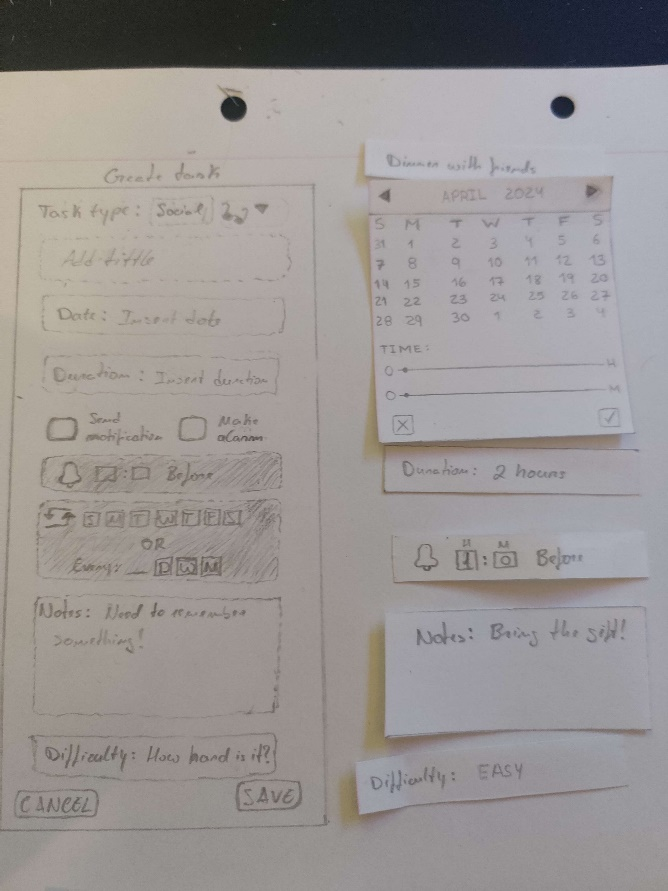 Create task
Task type: Social
Add tittle
Date: Insert date
Duration: Insert duration
Send notification
Make alarm
: Before
S M T W T F S
OR
Every: _ D W M
Notes: Need to remember
something!
Difficulty: How hard is it?
CANCEL SAVE
Dinner with friends
APRIL 2024
S M T W T F S
31 1 2 3 4 5 6
7 8 9 10 11 12 13
14 15 16 17 18 19 20
21 22 23 24 25 26 27
28 29 30 1 2 3 4
TIME:
0 H
0 M
X
Duration: 2 hours
H M
1 : 0 Before
Notes: Bring the gift!
Difficulty: EASY